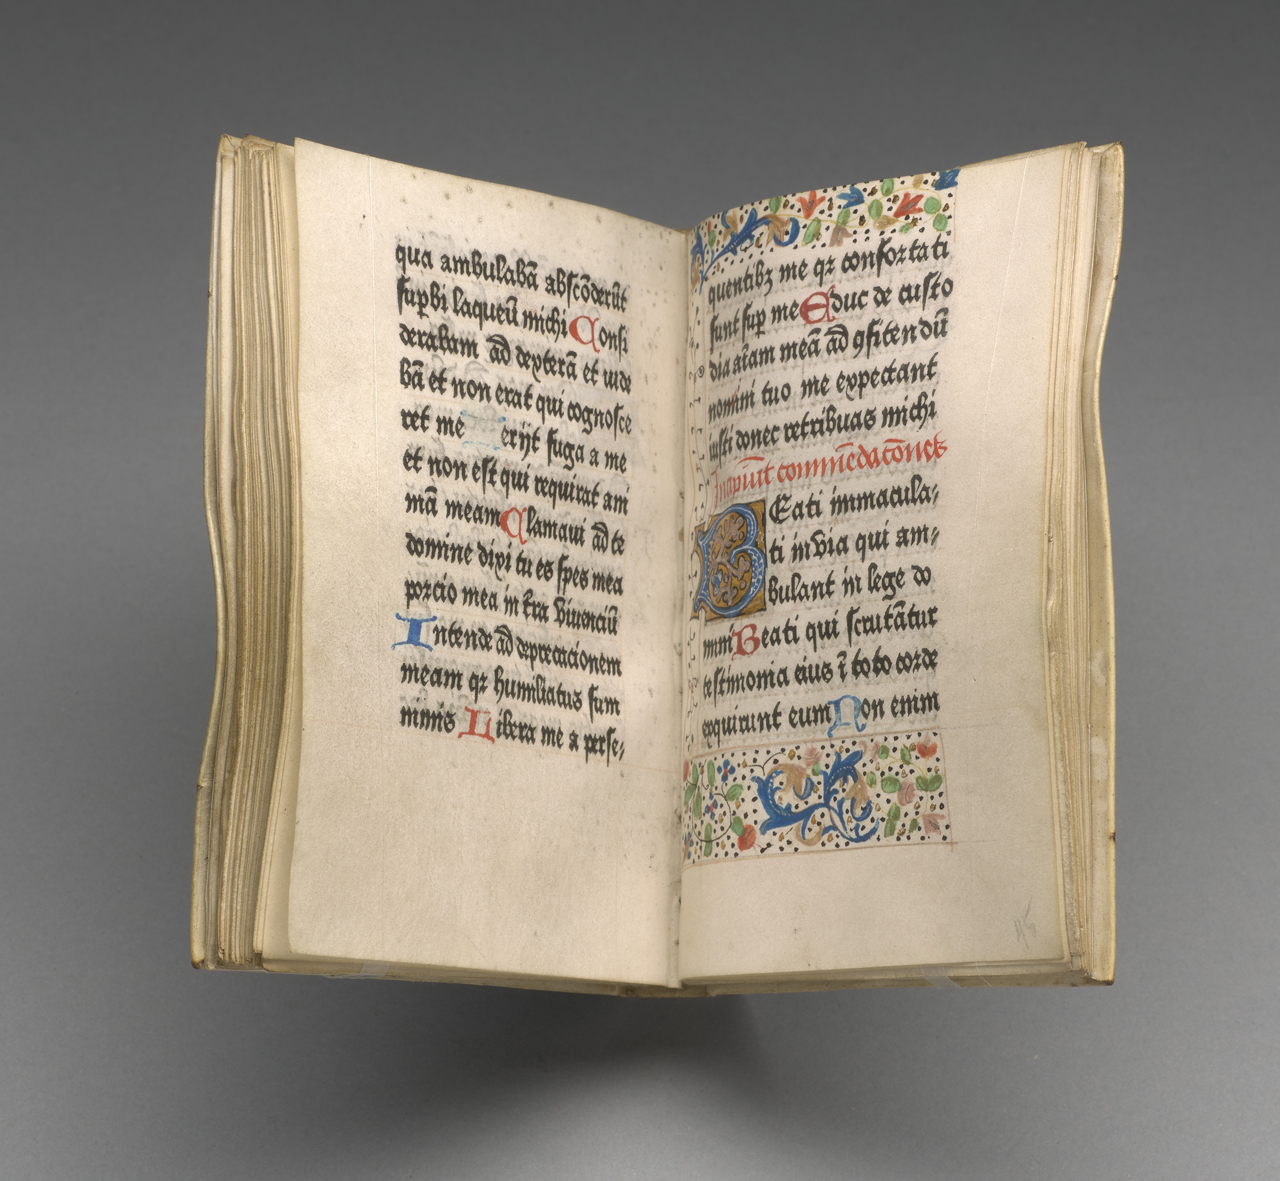 qua ambulabā abscōderūt
supbi laqueū michi Consi
derabam ad dexterā et uide
bā et non erat qui cognosce
ret me eriit fuga a me
et non est qui requirat ani
mā meam Clamaui ad te
domine dixi tu es spes mea
porcio mea in tra viuenciū
Intende ad deprecacionem
meam qz humiliatus sum
nimis Libera me a perse-
quentibz me qz confortati
sunt sup me Educ de custo
dia aīam meā ad 9fitendū
nomini tuo me expectant
iusti donec retribuas michi
Incipiūt commēdacōnes
BEati immacula-
ti in via qui am-
bulant in lege do
mini Beati qui scrutātur
testimonia eius ī toto corde
exquirunt eum Non enim
45